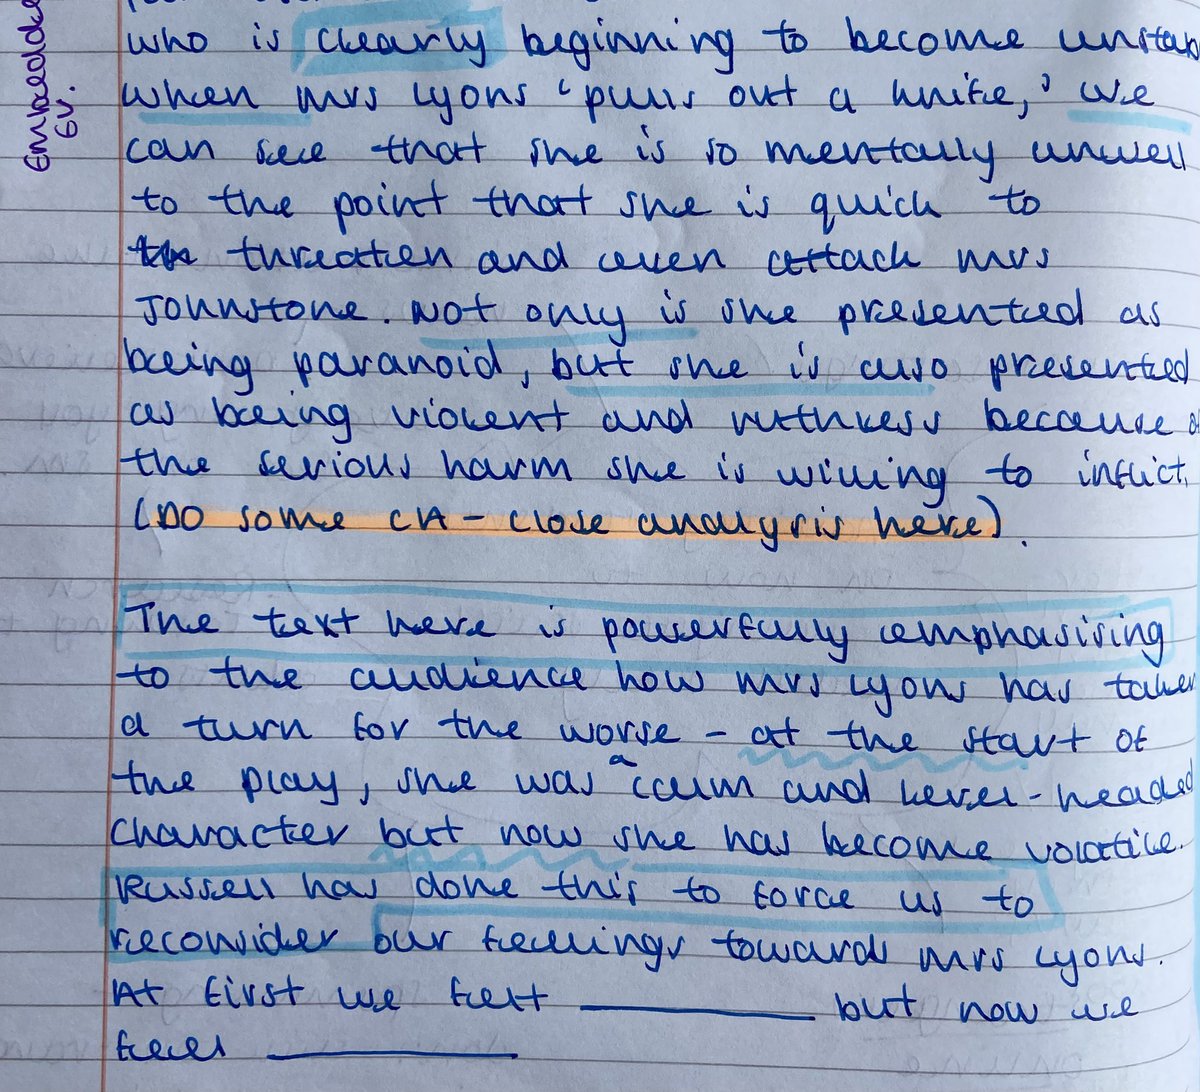 Embedded
Ev.
who is clearly beginning to become unstab
when mrs Lyons 'pulls out a knife,' we
can see that she is so mentally unwell
to the point that she is quick to
threaten and even attack mrs
Johnstone. Not only is she presented as
being paranoid, but she is also presented
as being violent and ruthless because of
the serious harm she is willing to inflict.
(DO some CA - close analysis here).
The text here is powerfully emphasising
to the audience how mrs Lyons has taken
a turn for the worse - at the start of
the play, she was a calm and level-headed
character but now she has become volatile.
Russell has done this to force us to
reconsider our feelings towards mrs Lyons.
At first we felt ________ but now we
feel ________